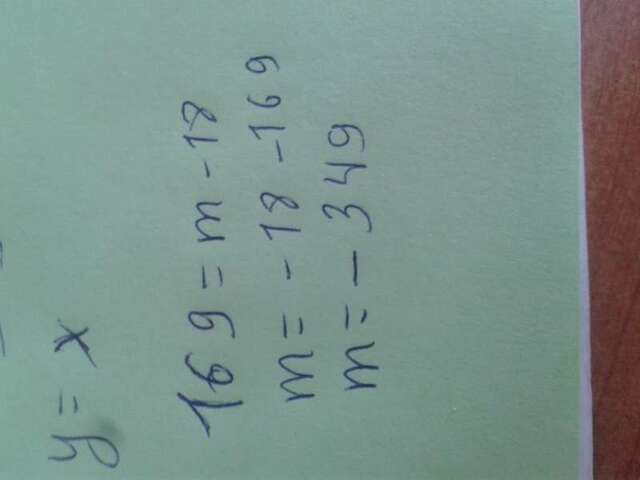 y = x
169 = m - 18
m = - 18 - 169
m = - 349